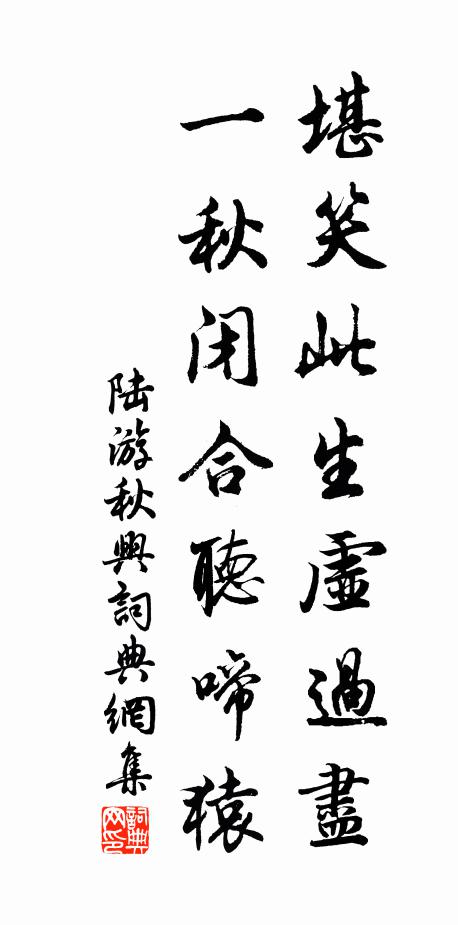 堪笑此生虛過盡
一秋闭合聽啼猿
陆游秋興詞典網集
詞典網印